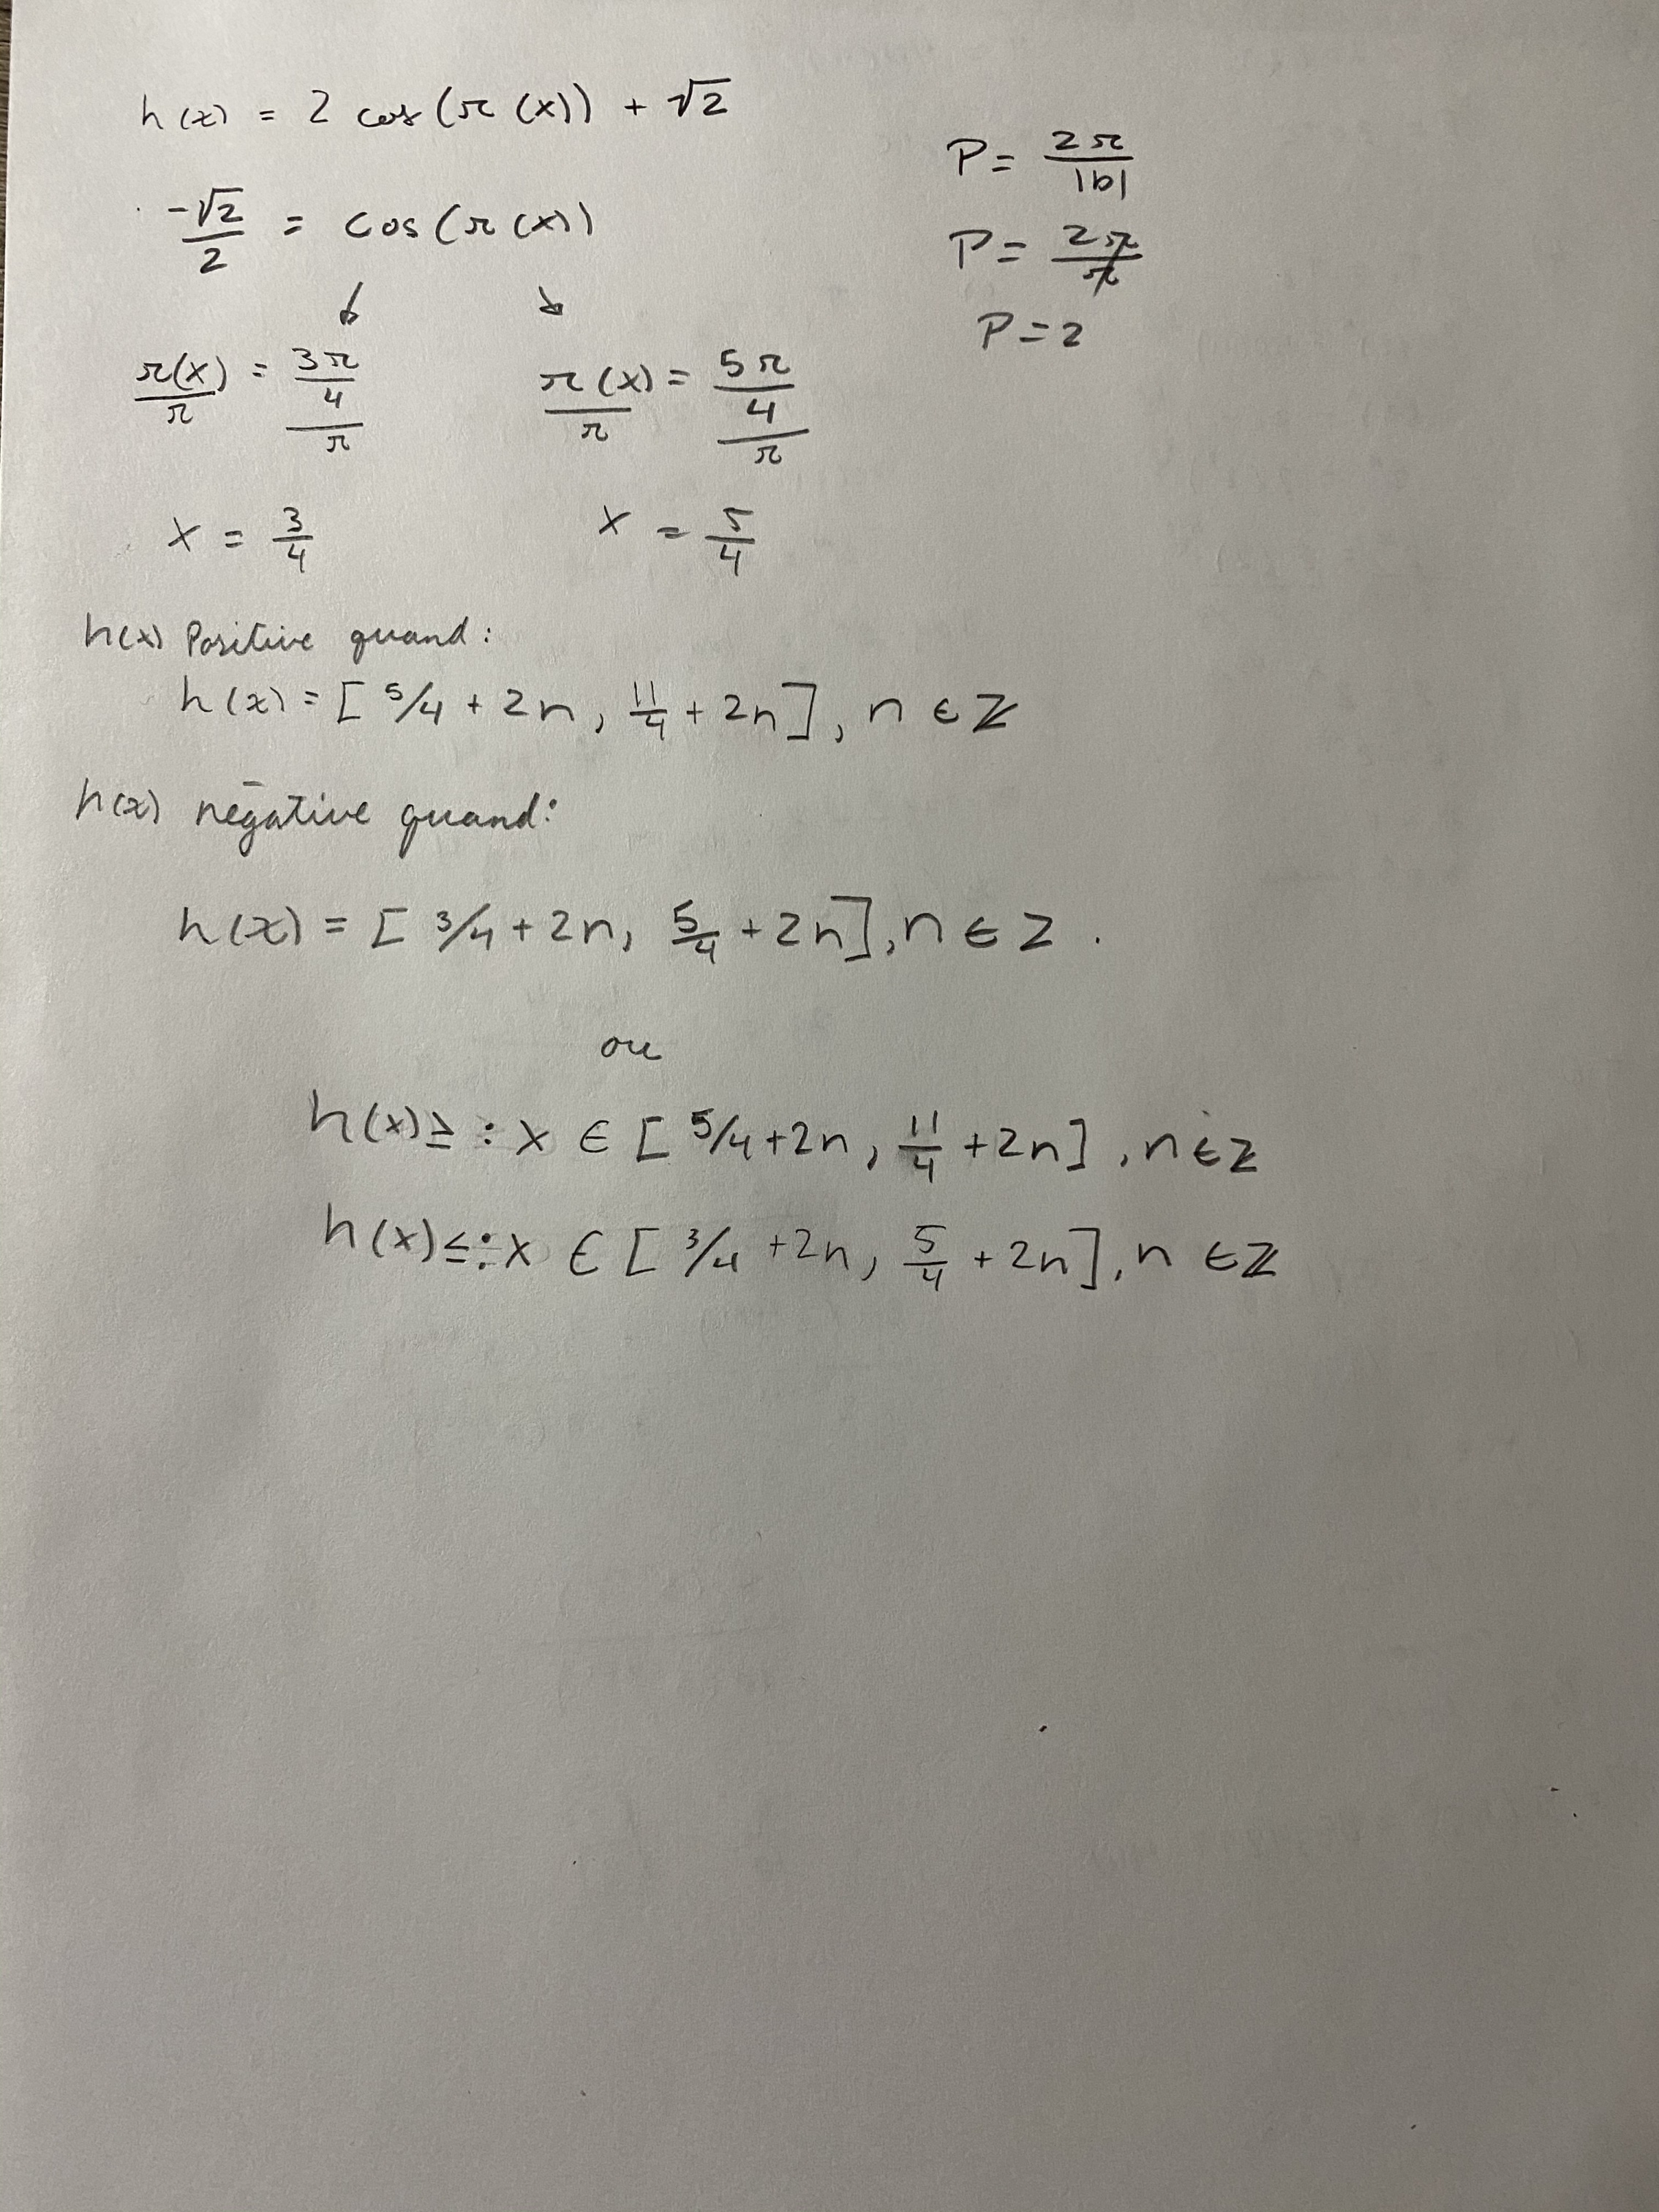 h(x) = 2 cos(π(x)) + √2
-√2/2 = cos(π(x))
↓ ↘
π(x)/π = 3π/4/π π(x)/π = 5π/4/π
x = 3/4 x = 5/4
P = 2π/|b|
P = 2π/π
P = 2
h(x) Positive quand :
h(x) = [5/4 + 2n, 11/4 + 2n], n ∈ ℤ
h(x) négative quand:
h(x) = [3/4 + 2n, 5/4 + 2n], n ∈ Z.
ou
h(x) ≥ : x ∈ [5/4 + 2n, 11/4 + 2n], n ∈ ℤ
h(x) ≤ : x ∈ [3/4 + 2n, 5/4 + 2n], n ∈ ℤ